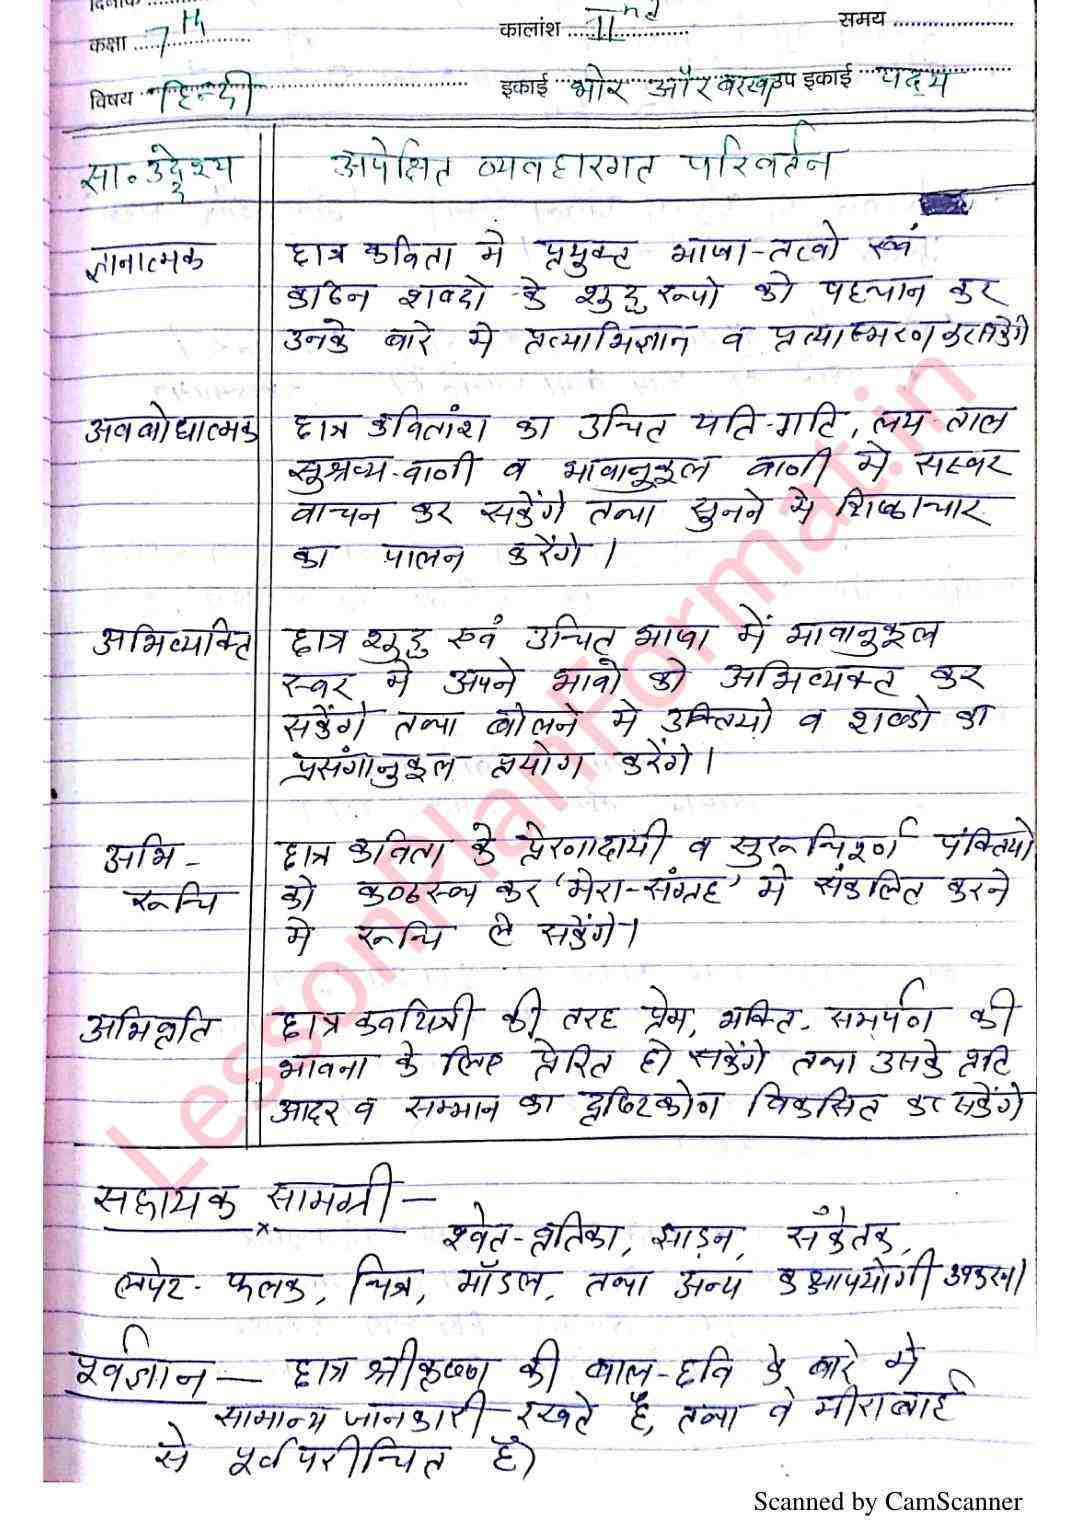 दिनांक
कक्षा 7th कालांश IInd समय
विषय हिन्दी इकाई भोर और बरखा उप इकाई पद्य
सा. उद्देश्य अपेक्षित व्यवहारगत परिवर्तन
ज्ञानात्मक छात्र कविता मे प्रयुक्त भाषा-तत्वो एवं
कठिन शब्दो के शुद्ध रूपो को पहचान कर
उनके बारे मे प्रत्याभिज्ञान व प्रत्यास्मरण कर सकेंगे
अवबोधात्मक छात्र कवितांश का उचित यति-गति, लय-ताल
सुश्रव्य-वाणी व भावानुकूल वाणी मे सस्वर
वाचन कर सकेंगे तथा सुनने मे शिष्टाचार
का पालन करेंगे।
अभिव्यक्ति छात्र शुद्ध एवं उचित भाषा में भावानुकूल
स्वर मे अपने भावो को अभिव्यक्त कर
सकेंगे तथा बोलने मे उक्तियो व शब्दो का
प्रसंगानुकूल प्रयोग करेंगे।
अभि- छात्र कविता के प्रेरणादायी व सुरूचिपूर्ण पंक्तियो
रूचि को कण्ठस्थ कर 'मेरा-संग्रह' मे संकलित करने
मे रूचि ले सकेंगे।
अभिवृति छात्र कवयित्री की तरह प्रेम, भक्ति, समर्पण की
भावना के लिए प्रेरित हो सकेंगे तथा उसके प्रति
आदर व सम्मान का दृष्टिकोण विकसित कर सकेंगे
सहायक सामग्री-
श्वेत-वर्तिका, झाड़न, संकेतक,
लपेट-फलक, चित्र, मॉडल, तथा अन्य कक्षोपयोगी उपकरण।
पूर्वज्ञान- छात्र श्रीकृष्ण की बाल-छवि के बारे मे
सामान्य जानकारी रखते है, तथा वे मीराबाई
से पूर्वपरीचित है।
LessonPlanFormat.in
Scanned by CamScanner